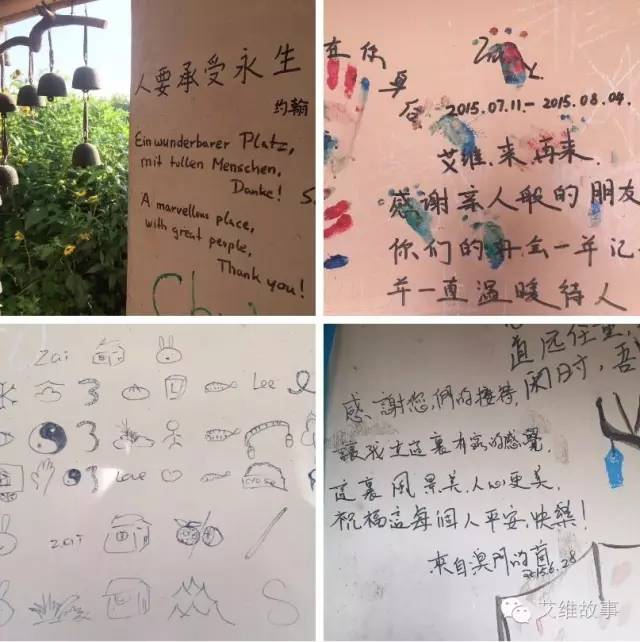 人要承受永生
约翰
Ein wunderbarer Platz,
mit tollen Menschen,
Danke!
A marvellous place,
with great people,
Thank you!
在你
2015.07.11.-2015.08.04.
艾维.来再来.
感谢亲人般的朋友
你们的
一直温暖待人
Zai
Lee
Love
zai
S
感謝您們的接待,
讓我在這裏有家的感覺,
這裏風景美.人心更美.
祝福這每個人平安,快樂!
來自澳門的
2015.6.28
艾维故事